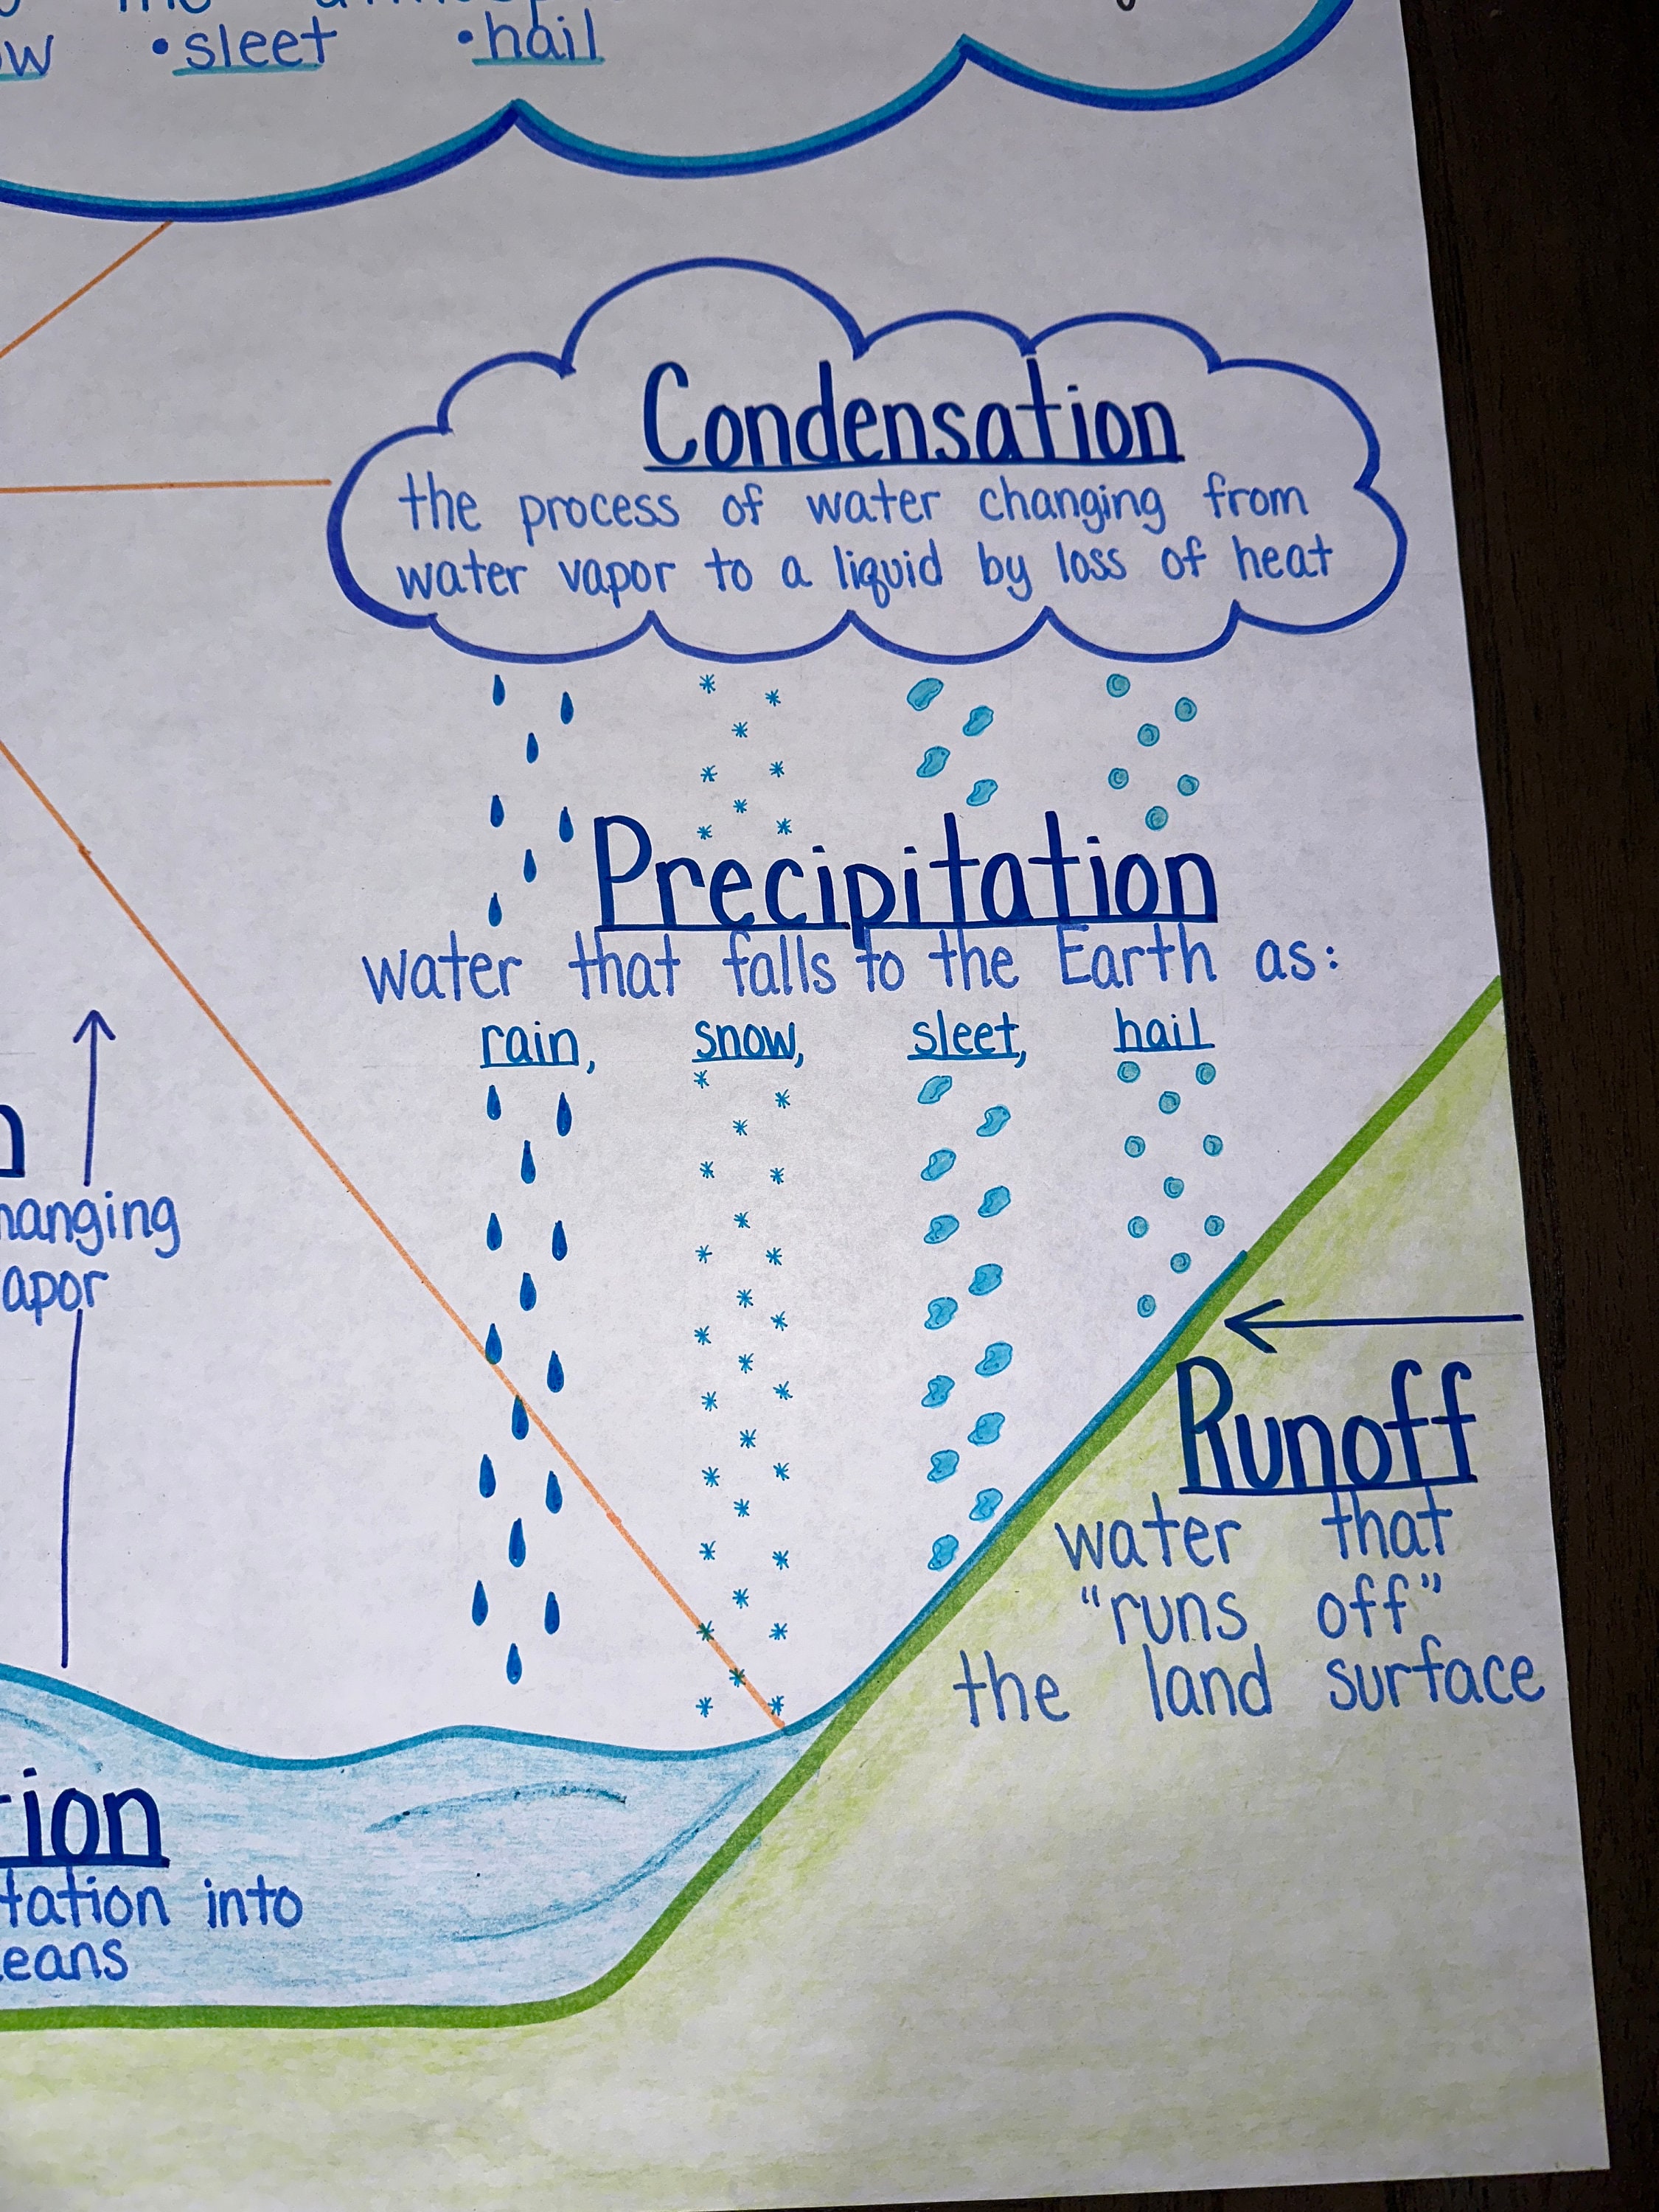 the
•sleet •hail
Condensation
the process of water changing from
water vapor to a liquid by loss of heat
Precipitation
water that falls to the Earth as:
rain, snow, sleet, hail
hanging
apor
Runoff
water that
"runs off"
the land surface
tion
tation into
eans